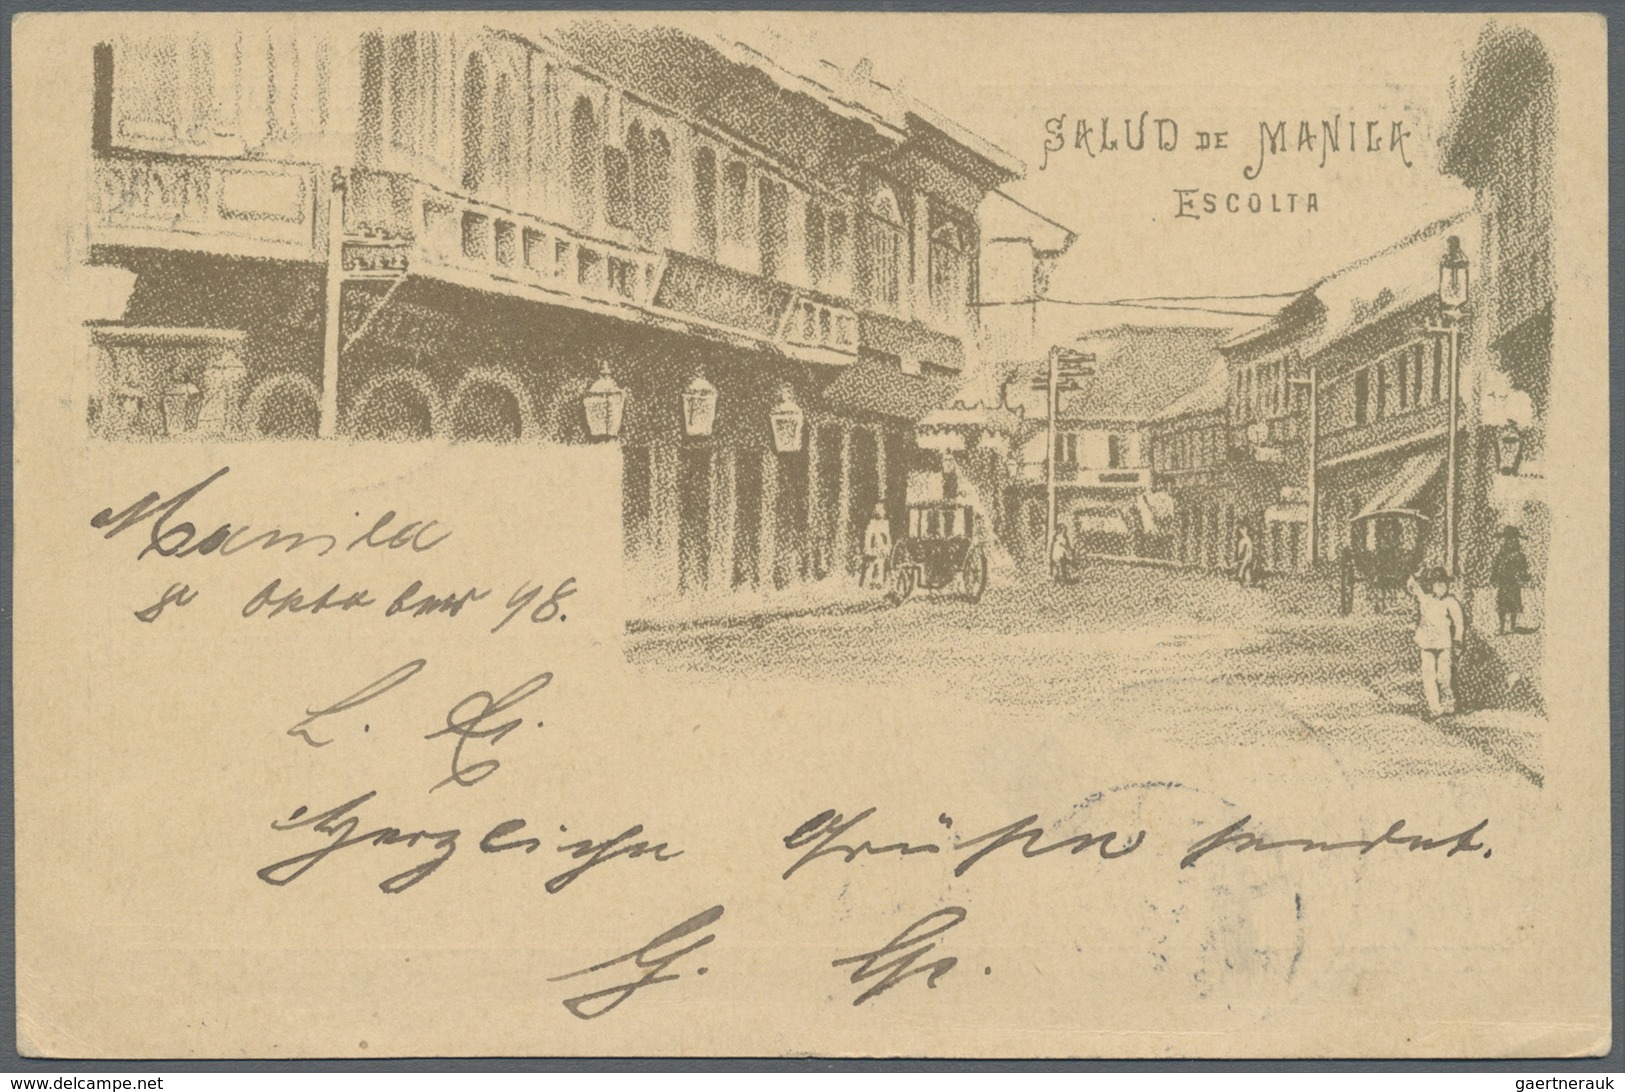 SALUD DE MANILA
ESCOLTA
Manila
8 Oktober 98.
L.
Herzliche Grüße sendet.
G.
www.delcampe.net
gaertnerauk